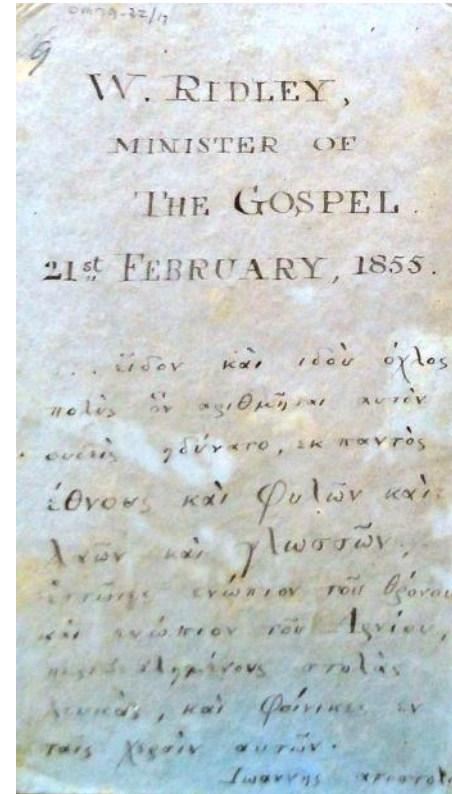 9
W. RIDLEY,
MINISTER OF
THE GOSPEL.
21st FEBRUARY, 1855.
... εἶδον καὶ ιδοὺ ὄχλος
πολὺς ὃν αριθμῆσαι αυτὸν
ουδεὶς ηδύνατο, εκ παντὸς
ἔθνους καὶ Φυλῶν καὶ
λαῶν καὶ γλωσσῶν,
ενώπιον τοῦ θρόνου
καὶ ενώπιον τοῦ Αρνίου,
στολὰς
λευκὰς, καὶ Φοίνικες εν
ταῖς χερσὶν αυτῶν.
Ιωαννης